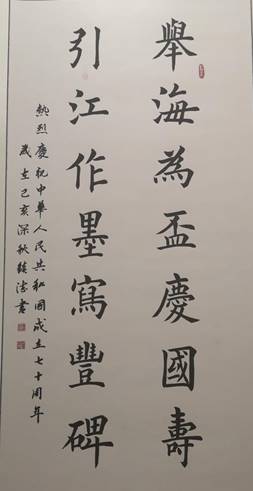 舉海為盃慶國壽
引江作墨寫豐碑
熱烈慶祝中華人民共和國成立七十周年
歲在己亥深秋穫濤書